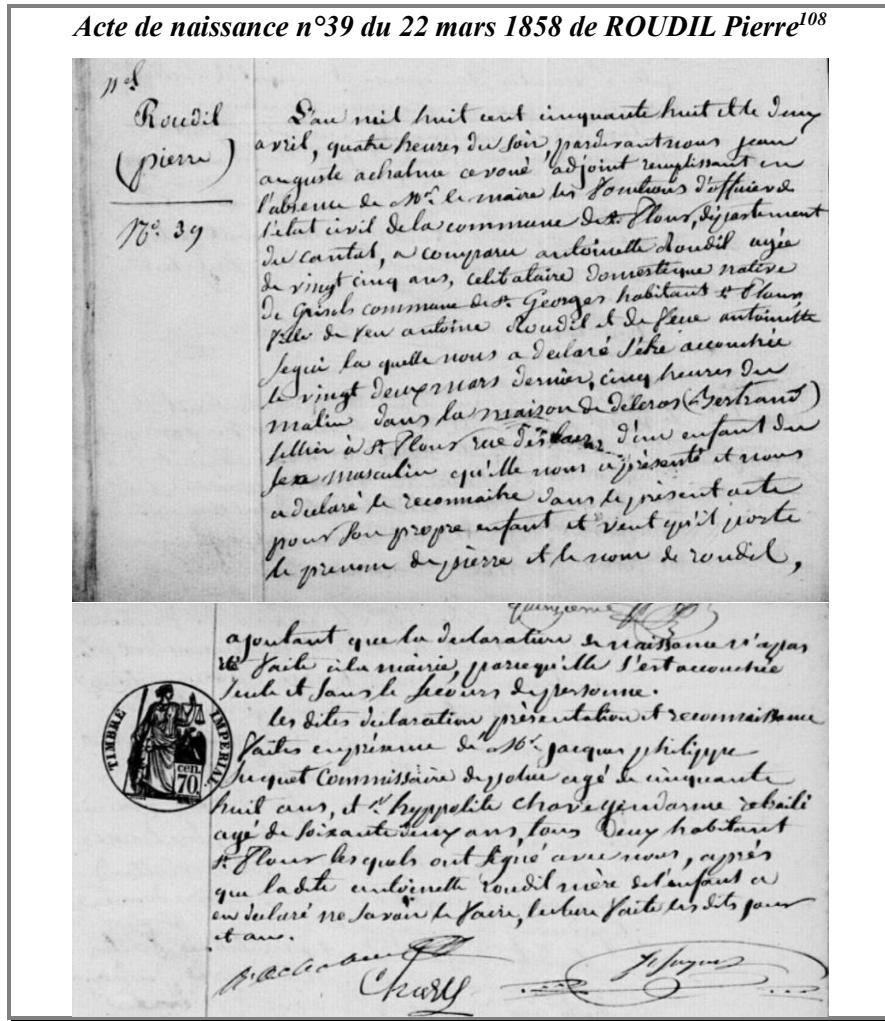 Acte de naissance n°39 du 22 mars 1858 de ROUDIL Pierre108
Roudil
(pierre)
N°. 39
L'an mil huit cent cinquante huit et le deux
avril, quatre heures du soir, pardevant nous jean
auguste achalme avoué adjoint remplissant en
l'absence de Mr. le maire les fonctions d'officier de
l'état civil de la commune de St. Flour, département
du cantal, a comparu antoinette Roudil agée
de vingt cinq ans, celibataire domestique native
de Grisols commune de St. Georges habitant St. Flour
fille de feu antoine Roudil et de feue antoinette
la quelle nous a declaré s'être accouchée
le vingt deux mars dernier, cinq heures du
matin dans la maison de deleros (Bertrand)
sellier à St. Flour rue des d'un enfant du
sexe masculin qu'elle nous a présenté et nous
a declaré le reconnaitre dans le présent acte
pour son propre enfant et veut qu'il porte
le prenom de pierre et le nom de roudil,
ajoutant que la declaration de naissance n'a pas
été faite à la mairie, parcequ'elle s'est accouchée
seule et sans le secours de personne.
les dites declaration présentation et reconnaissance
faites en présence de Mr. jacques philippe
juquet Commissaire de police agé de cinquante
huit ans, et Sr. hyppolite chavegendarme retraité
agé de soixante deux ans, tous deux habitant
St. Flour les quels ont signé avec nous, après
que ladite antoinette roudil mère de l'enfant a
eu declaré ne savoir le faire, lecture faite les dits jour
et an.
TIMBRE IMPERIAL
cen.
70